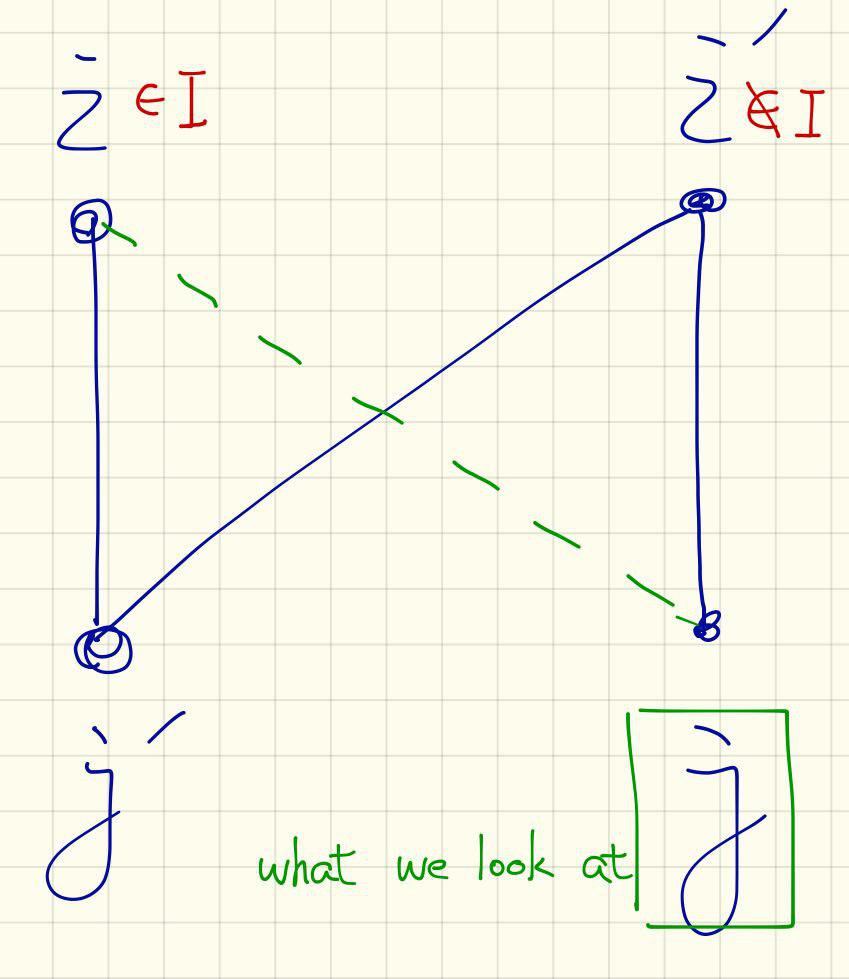 i ∈ I
i' ∉ I
j'
what we look at j